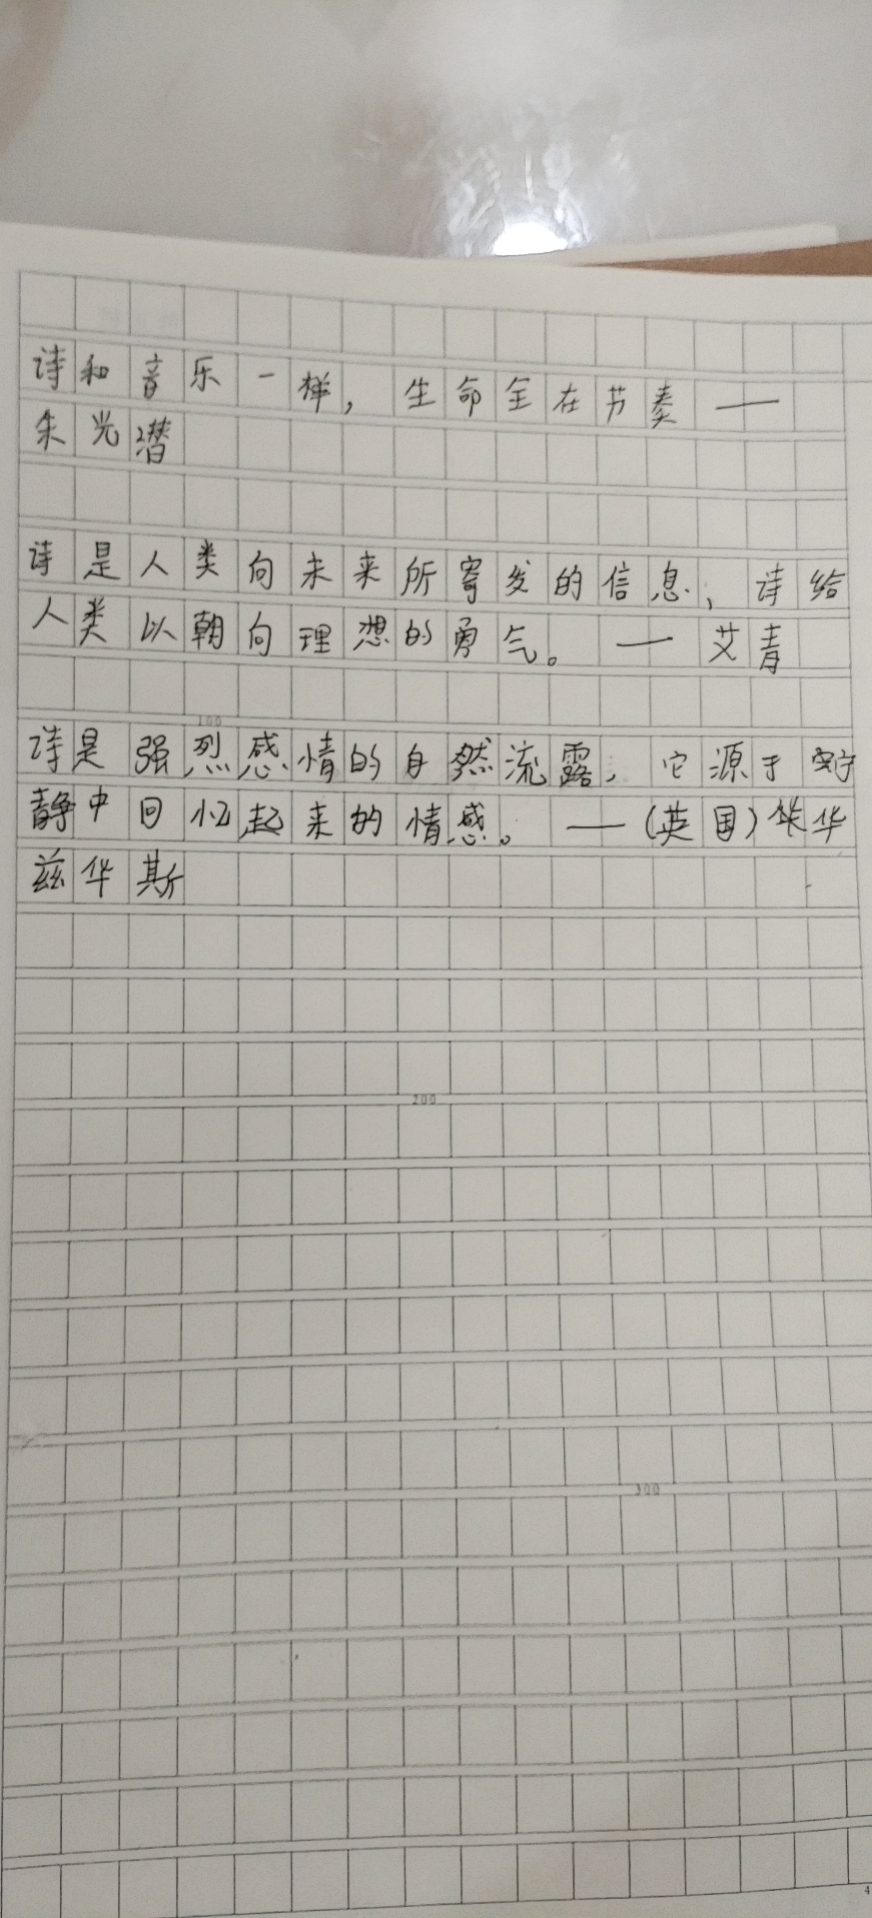 诗和音乐一样，生命全在节奏——
朱光潜
诗是人类向未来所寄发的信息，诗给
人类以朝向理想的勇气。——艾青
100
诗是强烈感情的自然流露，它源于宁
静中回忆起来的情感。——（英国）华华
兹华斯
200
300
4